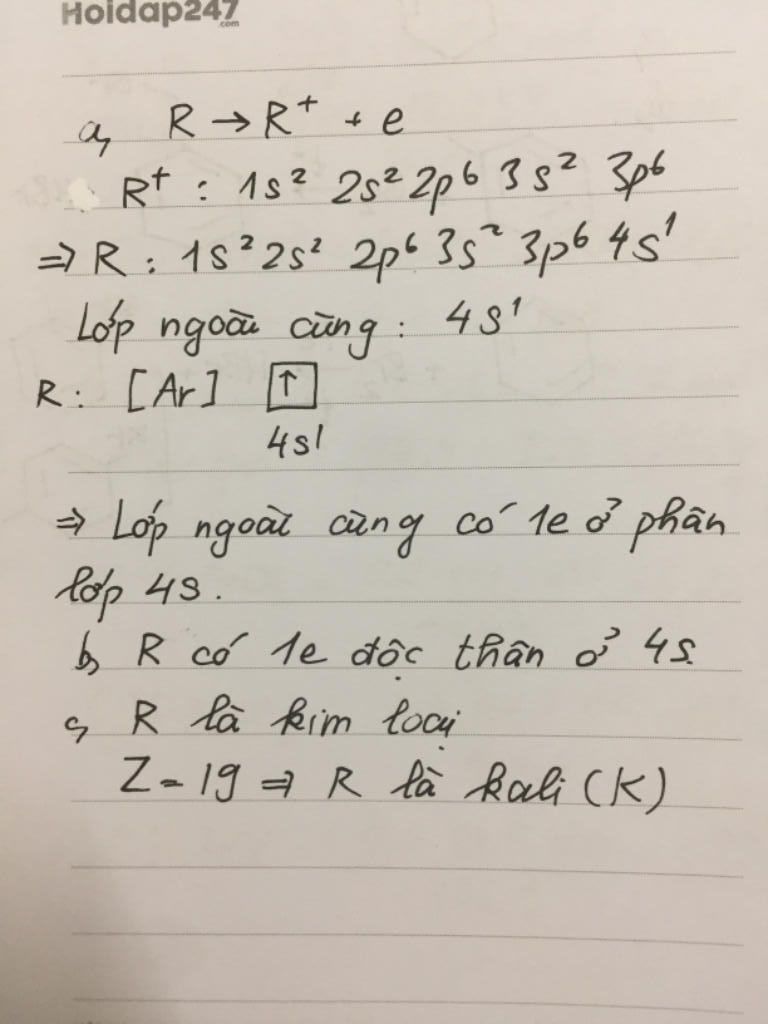 Hoidap247
.com
a, R → R⁺ + e
R⁺ : 1s² 2s² 2p⁶ 3s² 3p⁶
⇒ R : 1s² 2s² 2p⁶ 3s² 3p⁶ 4s¹
Lớp ngoài cùng : 4s¹
R : [Ar] ↑
4s¹
⇒ Lớp ngoài cùng có 1e ở phân
lớp 4s.
b, R có 1e độc thân ở 4s.
c, R là kim loại
Z = 19 ⇒ R là kali (K)